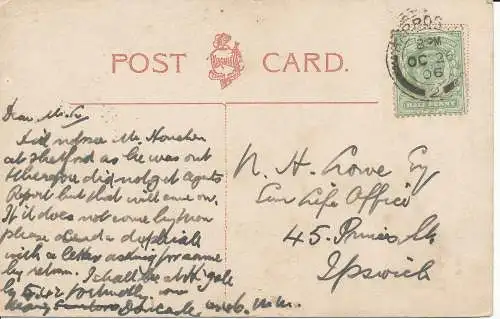 POST CARD.
8 PM
OC 2
06
HALF PENNY
Dear Mr
I did not see Mr.
at Thetford as he was out
therefore did not get agents
Report but that will come on.
If it does not come by
please send a duplicate
with a letter asking for same
by return. I shall be at
N. H. Lowe Esq
Sun Life Office
45. Princes St.
Ipswich